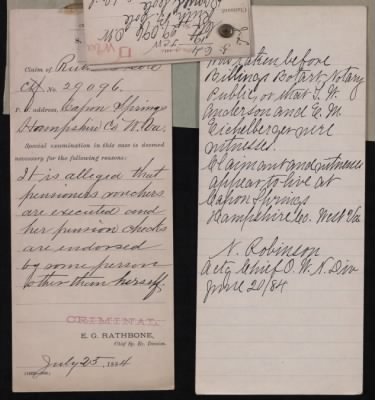 Claim of
No. 29096.
P. O. address, Capon Springs
Hampshire Co W. Va.
Special examination in this case is deemed
necessary for the following reasons:
It is alleged that
pensioners vouchers
are executed and
her pension checks
are endorsed
by some person
other than herself.
CRIMINAL,
E. G. RATHBONE,
Chief Sp. Ex. Division.
July 25, 1884
taken before
Billings Notary
Public, or that
Anderson and E. M.
Eichelberger were
witnesses.
Claimant and witnesses
appear to live at
Capon Springs
Hampshire Co. West Va
N. Robinson
Actg Chief O. W. N. Div
June 20/84